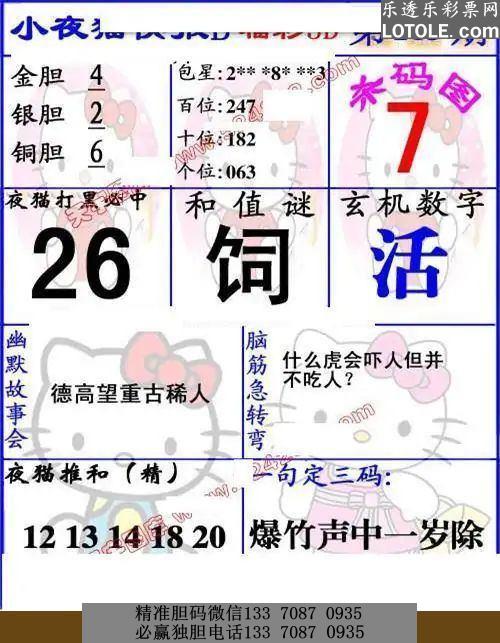 乐透乐彩票网
LOTOLE.COM
小夜猫快报D 福彩3D 第 期
金胆 4
银胆 2
铜胆 6
包星: 2** *8* **3
百位: 247
十位: 182
个位: 063
杀码图
7
夜猫打黑必中
26
和值谜
饲
玄机数字
活
幽默故事会
德高望重古稀人
脑筋急转弯
什么虎会吓人但并
不吃人?
夜猫推和(精)
12 13 14 18 20
一句定三码:
爆竹声中一岁除
精准胆码微信133 7087 0935
必赢独胆电话133 7087 0935